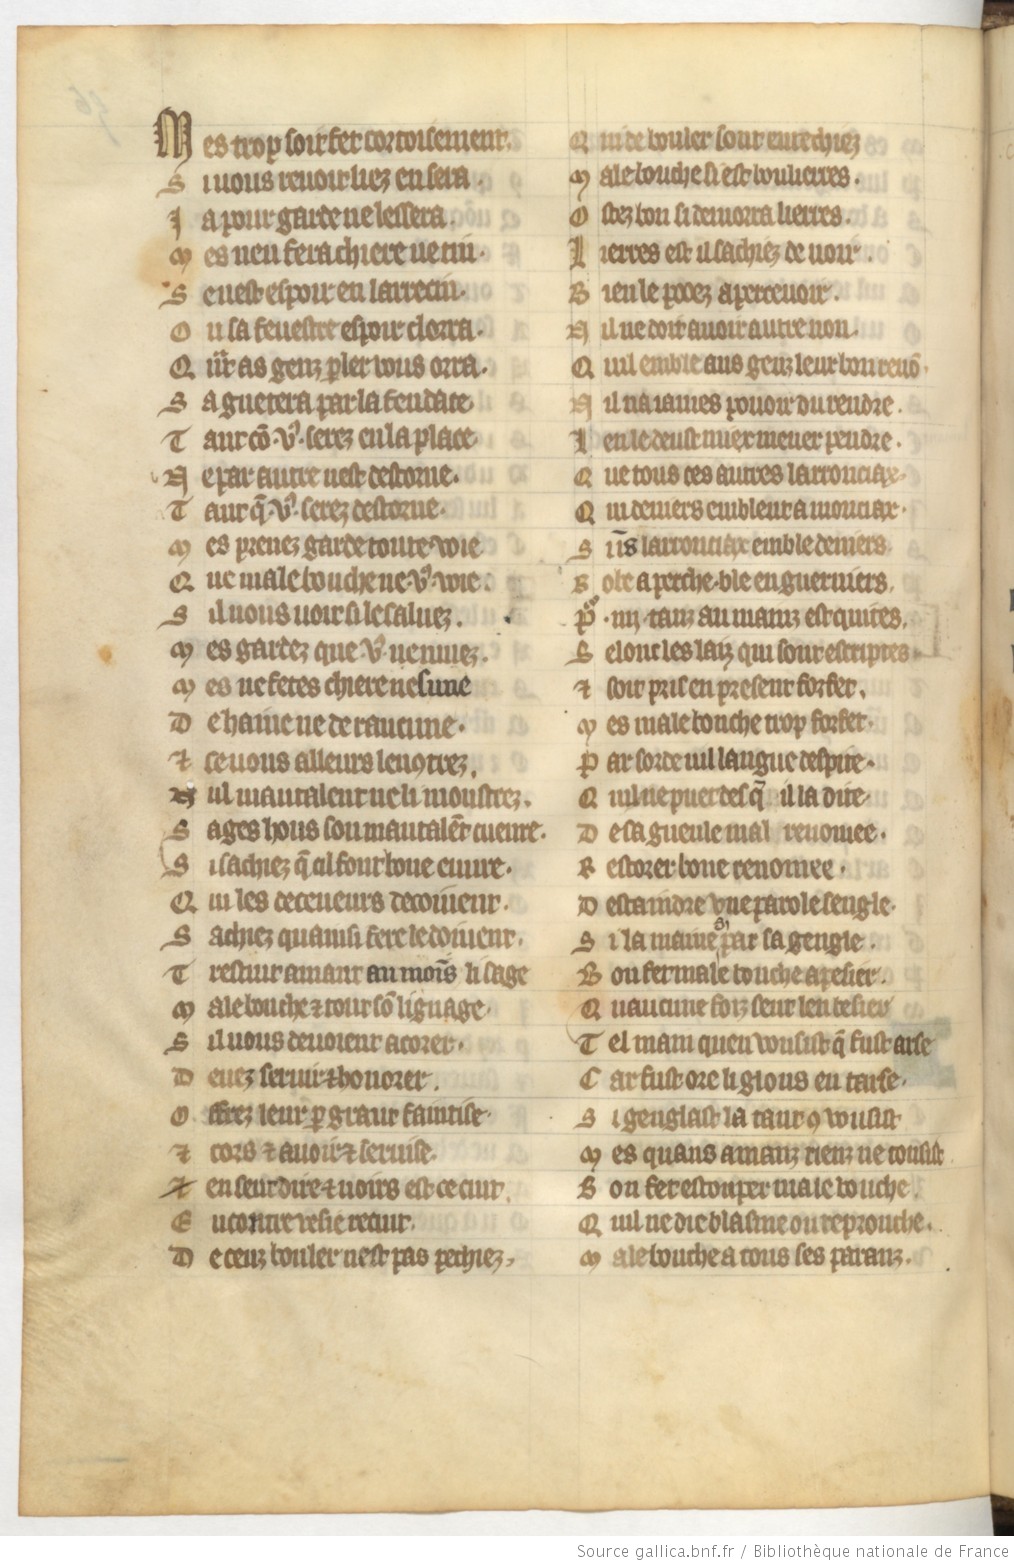 Mes trop soit fet cortoisement.
Si vous revoir liez en sera.
Ja pour garde ne lessera.
Mes n'en fera chiere ne riu.
Se n'est espoir en larrecin.
Ou sa fenestre espoir clorra.
Qnt as genz pler vous orra.
Saguetera par la fendace
Tant cō. vꝰ. serez en la place
Ne par autre n'est destorne.
Tant q̄. vꝰ. serez destorne.
Mes prenez garde toute voie
Que male bouche ne. vꝰ. voie.
Sil vous voit si le saluez.
Mes gardez que vꝰ ne muez.
Mes ne fetes chiere nesune
De haine ne de rancune.
⁊ ce vous alleurs lencōtrez.
Nul mautalent ne li moustrez.
Sages hons son mautalēt cuevre.
Si sachiez q̄ cil font bone euvre.
Qui les deceveurs decoivent.
Sachiez quainsi fere le doivent.
Trestuit amant au moīs li sage
Male bouche ⁊ tout sō lignage.
Sil vous devoient acorer.
Devez servir ⁊ honorer.
Offrez leur p grant faintise
⁊ cors ⁊ avoir ⁊ servise.
⁊ en seut dire ⁊ voirs est ce cuit.
Encontre vesie recuit.
De ceuz bouler n'est pas pechiez.
Qui de bouler sont entechiez
Male bouche si est boulierres.
Ostez bou si demorra lierres.
Lierres est il sachiez de voir.
Bien le poez apercevoir.
Nil ne doit avoir autre non.
Quil emble aus genz leur bon renō.
Nil na iames pouoir du rendre.
Len le deust miex mener pendre.
Que tous ces autres larronciax.
Qui deniers emblent a monciax.
Suns larronciax emble deniers.
Robe a perche. ble en greniers.
Por. iiij. tanz au mainz est quites.
Selonc les laiz qui sont escriptes
⁊ soit pris en present forfet.
Mes male bouche trop forfet.
Par sorde vil langue despite.
Quil ne puet des q̄ il la dite.
De sa gueule mal renomee.
Restorer bone renomee.
Destaindre une parole sengle.
Si la mainēs par sa gengle.
Bon fet male bouche apesier.
Quaucune foiz seut len besier
Tel main quen vousist q̄ fust arse
Car fust ore li glous en tarse.
Si genglast la tant ꝯ vousist
Mes quans amanz rienz ne tousist
Bon fet estouper male bouche.
Quil ne die blasme ou reprouche.
Male bouche a tous ses paranz.
Source gallica.bnf.fr / Bibliothèque nationale de France